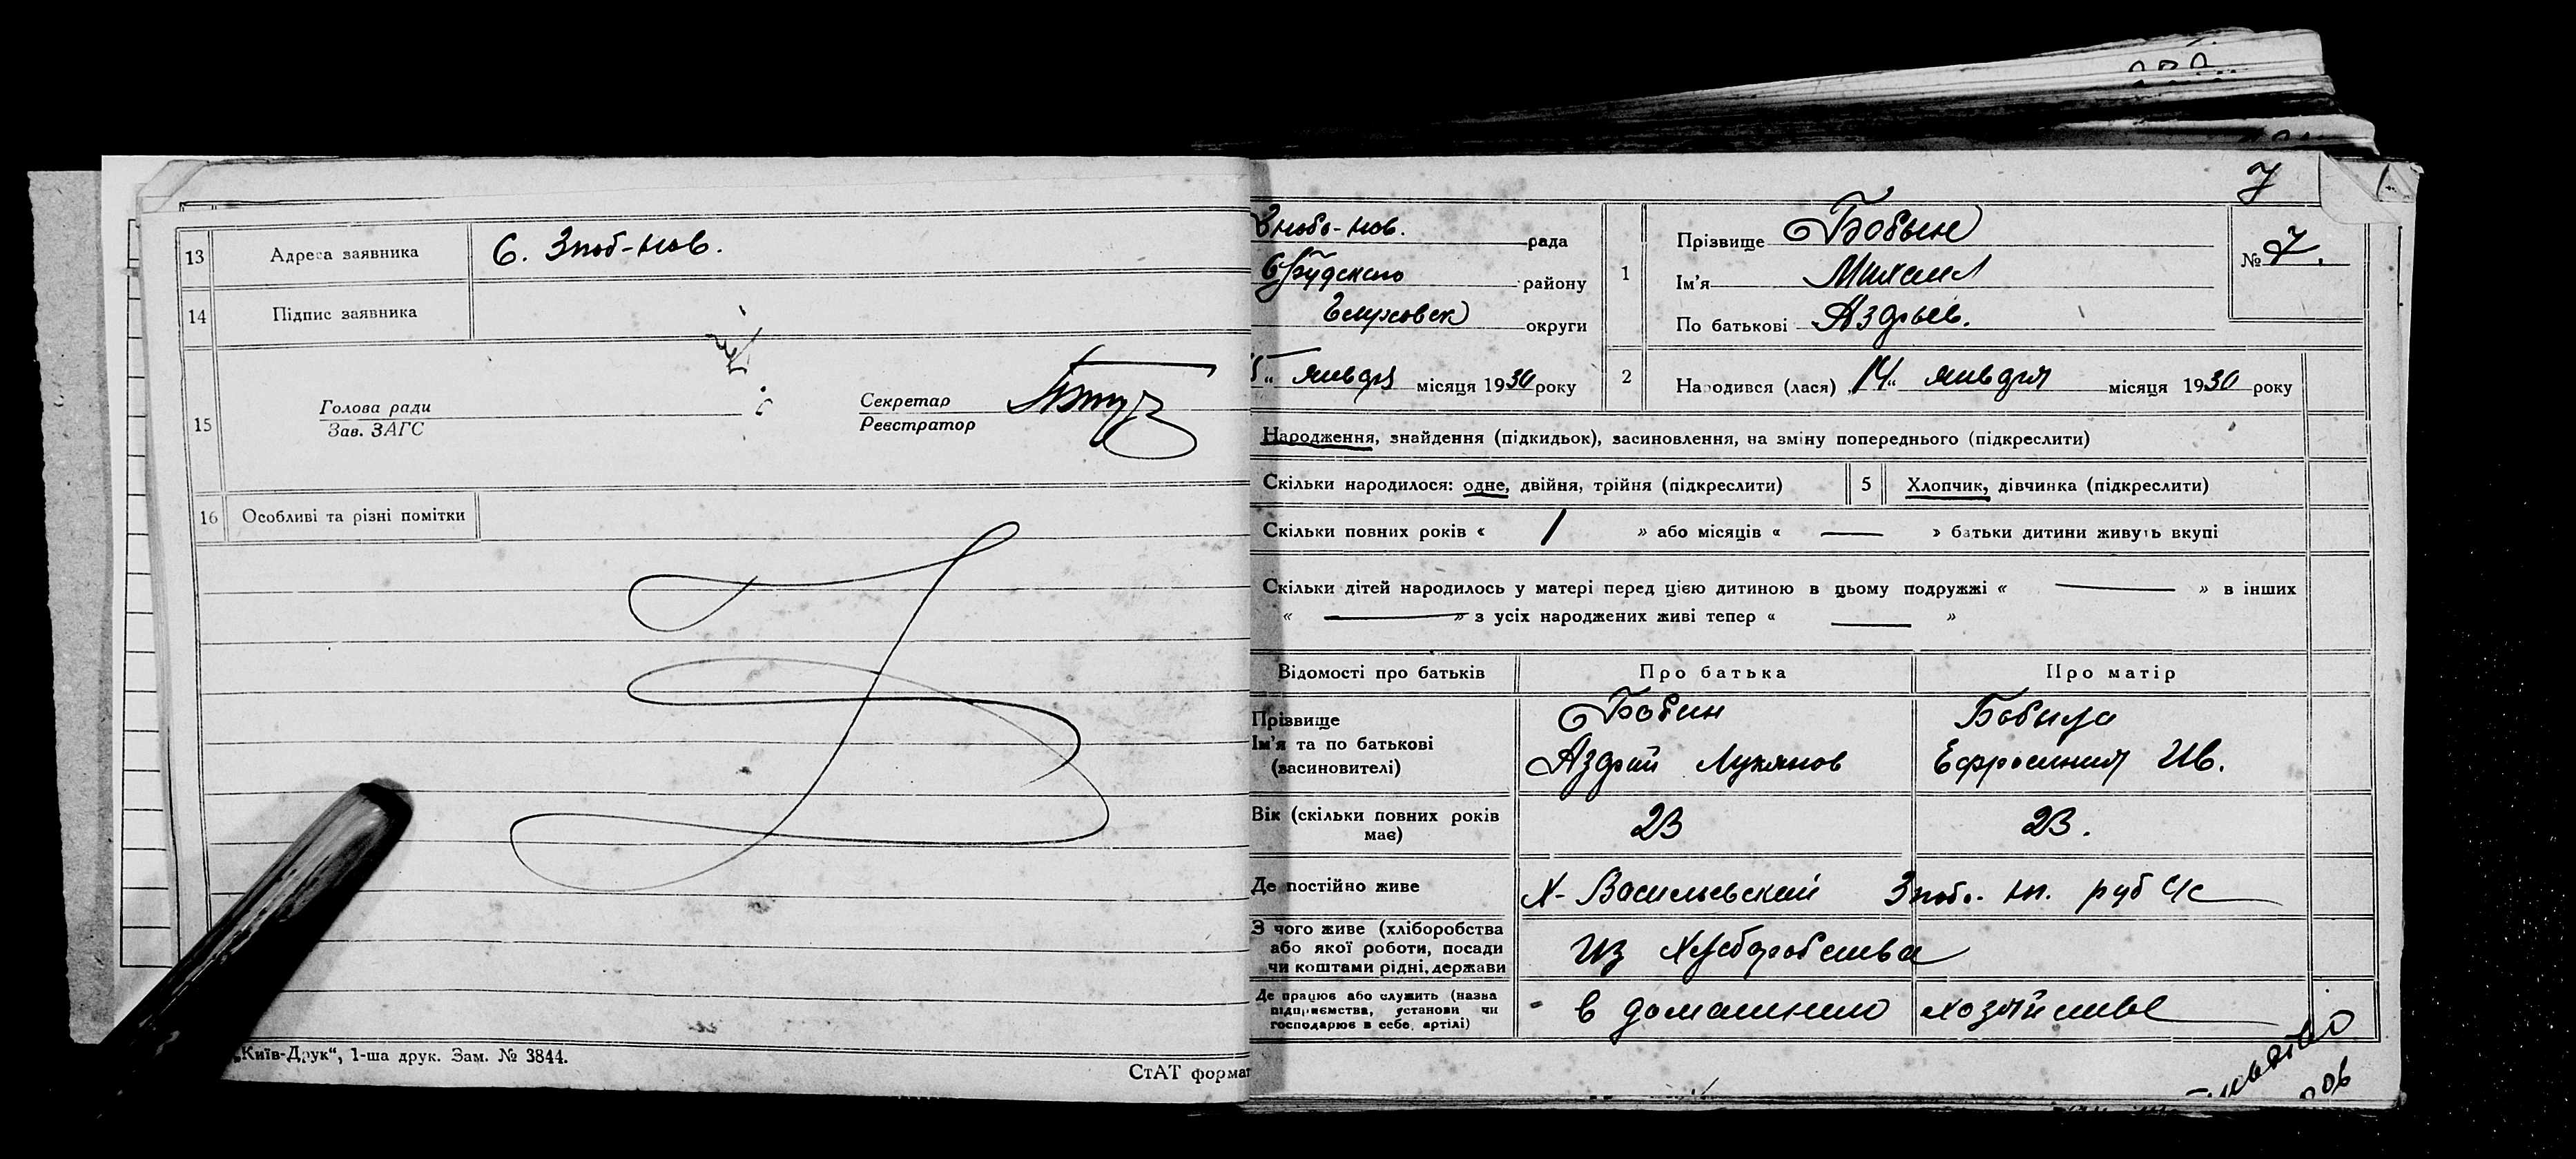 13 Адреса заявника с. Зноб-Нов.
14 Підпис заявника
15 Голова ради
Зав. ЗАГС
Секретар
Реєстратор
16 Особливі та різні помітки
„Київ-Друк“, 1-ша друк. Зам. № 3844.
СтАТ формат
7
Знобь-Нов. рада
С Будского району
Глуховск округи
января місяця 1930 року
1 Прізвище Бобын
Ім’я Михаил
По батькові Аздрыев.
№ 7.
2 Народився (лася) „14“ января місяця 1930 року
Народження, знайдення (підкидьок), засиновлення, на зміну попереднього (підкреслити)
Скільки народилося: одне, двійня, трійня (підкреслити) 5 Хлопчик, дівчинка (підкреслити)
Скільки повних років « 1 » або місяців « — » батьки дитини живуть вкупі
Скільки дітей народилось у матері перед цією дитиною в цьому подружжі « — » в інших
« — » з усіх народжених живі тепер « — »
Відомості про батьків Про батька Про матір
Прізвище Бобин
Ім’я та по батькові Аздрий Лукянов Ефросиния Ив.
(засиновителі)
Вік (скільки повних років має) 23 23.
Де постійно живе Х-Васильевский Зноб.-
З чого живе (хліборобства
або якої роботи, посади из хлеборобства
чи коштами рідні, держави
Де працює або служить (назва
підприємства, установи чи в домашнем хозяйстве
господарює в себе, артілі)